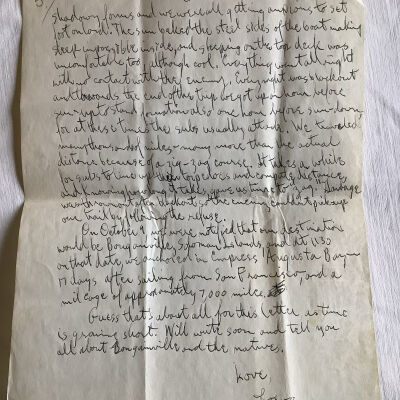 5/
shadowy forms and we were all getting anxious to set
foot on land. The sun baked the steel sides of the boat making
sleep impossible inside, and sleeping on the top deck was
uncomfortable too, although cool. Everything went all right
with no contact with the enemy. Every night was blackout
and towards the end of the trip we got up an hour before
sun-up to stand also one hour before sun-down,
for at these times the subs usually attack. We traveled
many thousands of miles - many more than the actual
distance because of a zig-zag course. It takes a while
for subs to line up their torpedoes and compute distance,
and knowing how long it takes, gave us time to "zag". Garbage
was thrown out after blackout so the enemy couldn't pick up
our trail by following the refuse.
On October we were notified that our destination
would be Bougainville, Solomon Islands, and at 1130
on that date, we anchored in Empress Augusta Bay
17 days after sailing from San Francisco, and a
mileage of approximately 7,000 miles.
Guess that's about all for this letter as time
is growing short. Will write soon and tell you
all about Bougainville and the natives.
Love,